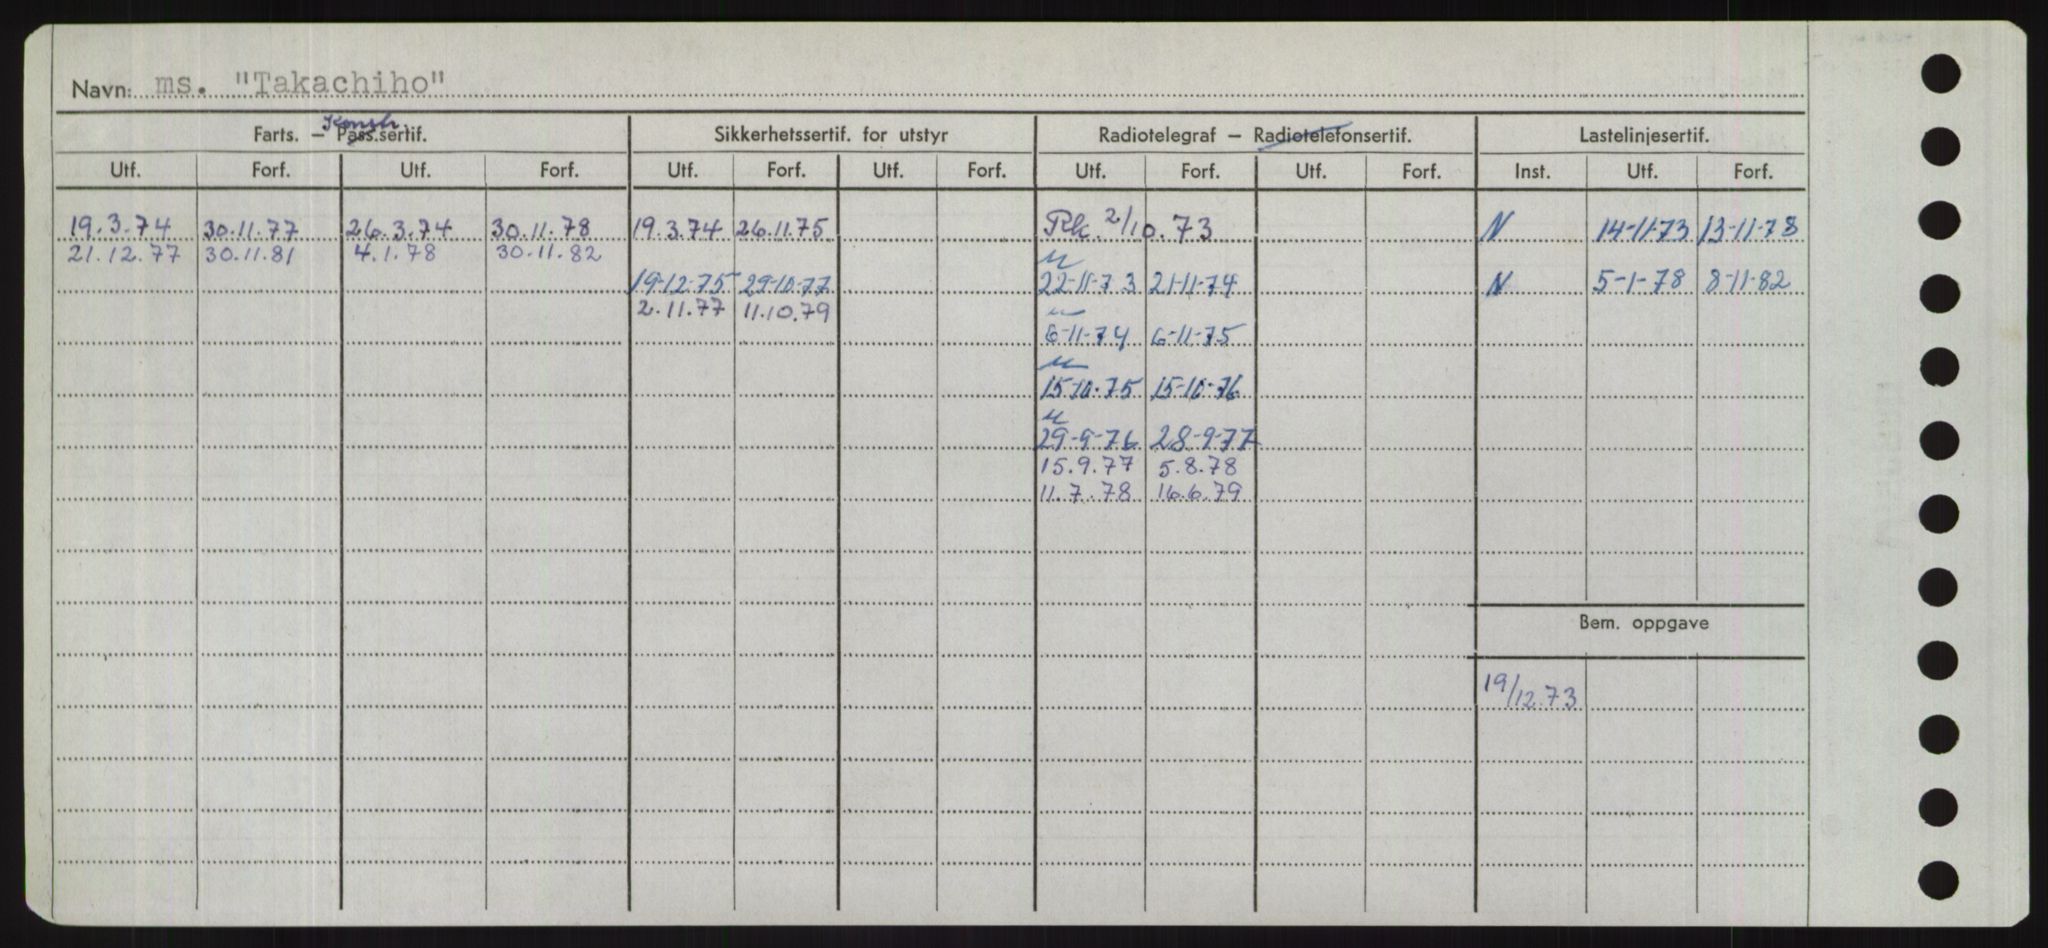 Navn: ms. "Takachiho"
Konstr.
Farts. — Pass.sertif. Sikkerhetssertif. for utstyr Radiotelegraf — Radiotelefonsertif. Lastelinjesertif.
Utf. Forf. Utf. Forf. Utf. Forf. Utf. Forf. Utf. Forf. Utf. Forf. Inst. Utf. Forf.
19.3.74 30.11.77 26.3.74 30.11.78 19.3.74 26.11.75 Rk. 2/10.73 N 14-11-73 13-11-78
21.12.77 30.11.81 4.1.78 30.11.82
19-12-75 29-10-77 22-11-73 21-11-74 N 5-1-78 8-11-82
2.11.77 11.10.79
6-11-74 6-11-75
15-10-75 15-10-76
29-9-76 28-9-77
15.9.77 5.8.78
11.7.78 16.6.79
Bem. oppgave
19/12.73